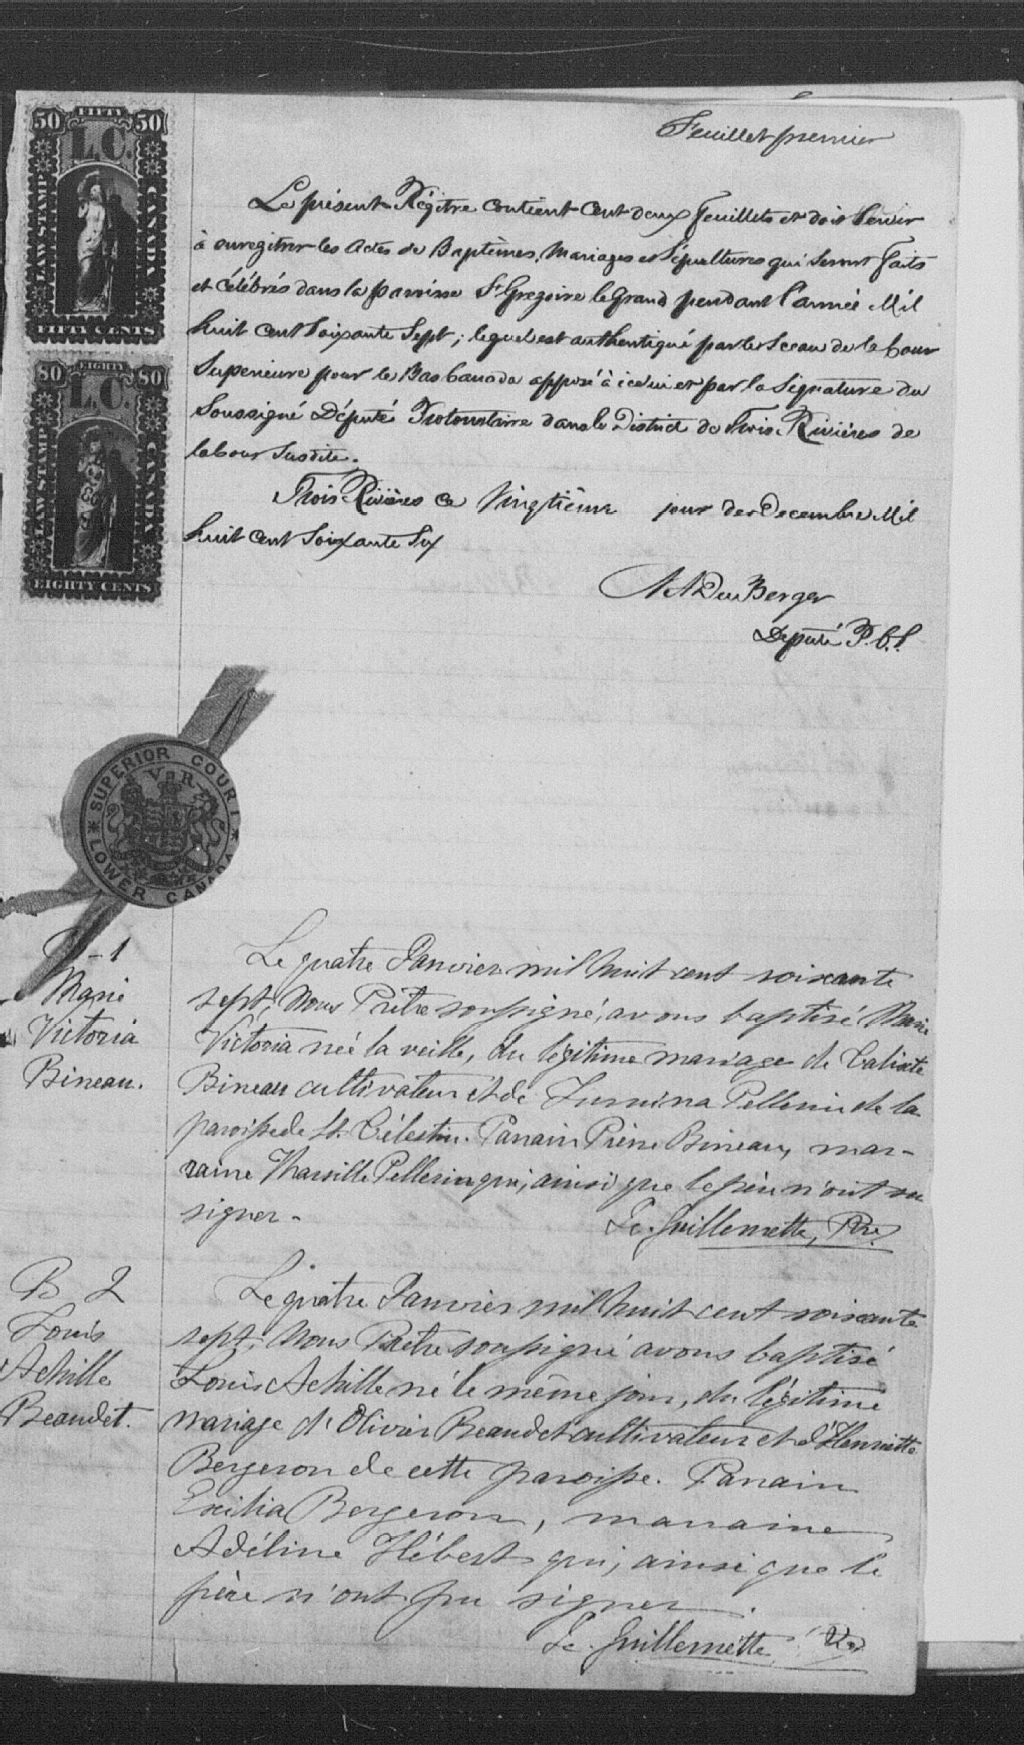 Feuillet premier
FIFTY
50 L.C. 50
LAW STAMP
CANADA
FIFTY CENTS
EIGHTY
80 L.C. 80
LAW STAMP
CANADA
EIGHTY CENTS
Le présent Régitre contient Cent deux feuillets et doit Servir
à enregitrer les Actes de Baptêmes, Mariages et Sépultures qui seront faits
et célébrés dans la paroisse St Gregoire le Grand pendant l'année Mil
huit cent soixante Sept ; lequel est authentiqué par le Sceau de la Cour
Superieure pour le Bas Canada apposé à icelui et par la Signature du
Soussigné Député Protonotaire dans le District de Trois-Rivières de
la Cour Susdite.
Trois Rivières ce Vingtième jour de Decembre Mil
huit cent Soixante Six
A A DuBerger
Député P.C.S.
SUPERIOR COURT
V R
LOWER CANADA
B-1
Marie
Victoria
Bineau.
Le quatre Janvier mil huit cent soixante
sept, Nous Prêtre soussigné, avons baptisé Marie
Victoria née la veille, du légitime mariage de Calixte
Bineau cultivateur et de Lumina Pellerin de la
paroisse de St. Célestin. Parrain Pierre Bineau, mar-
raine Tharsille Pellerin qui, ainsi que le père n'ont su
signer.
Guillemette, Ptre
B 2
Louis
Achille
Beaudet.
Le quatre Janvier mil huit cent soixante
sept, Nous Prêtre soussigné avons baptisé
Louis Achille né le même jour, du légitime
mariage d'Olivier Beaudet cultivateur et d'Henriette
Bergeron de cette paroisse. Parrain
Exilia Bergeron, marraine
Adéline Hébert qui, ainsi que le
père n'ont pu signer.
Guillemette, Ptre